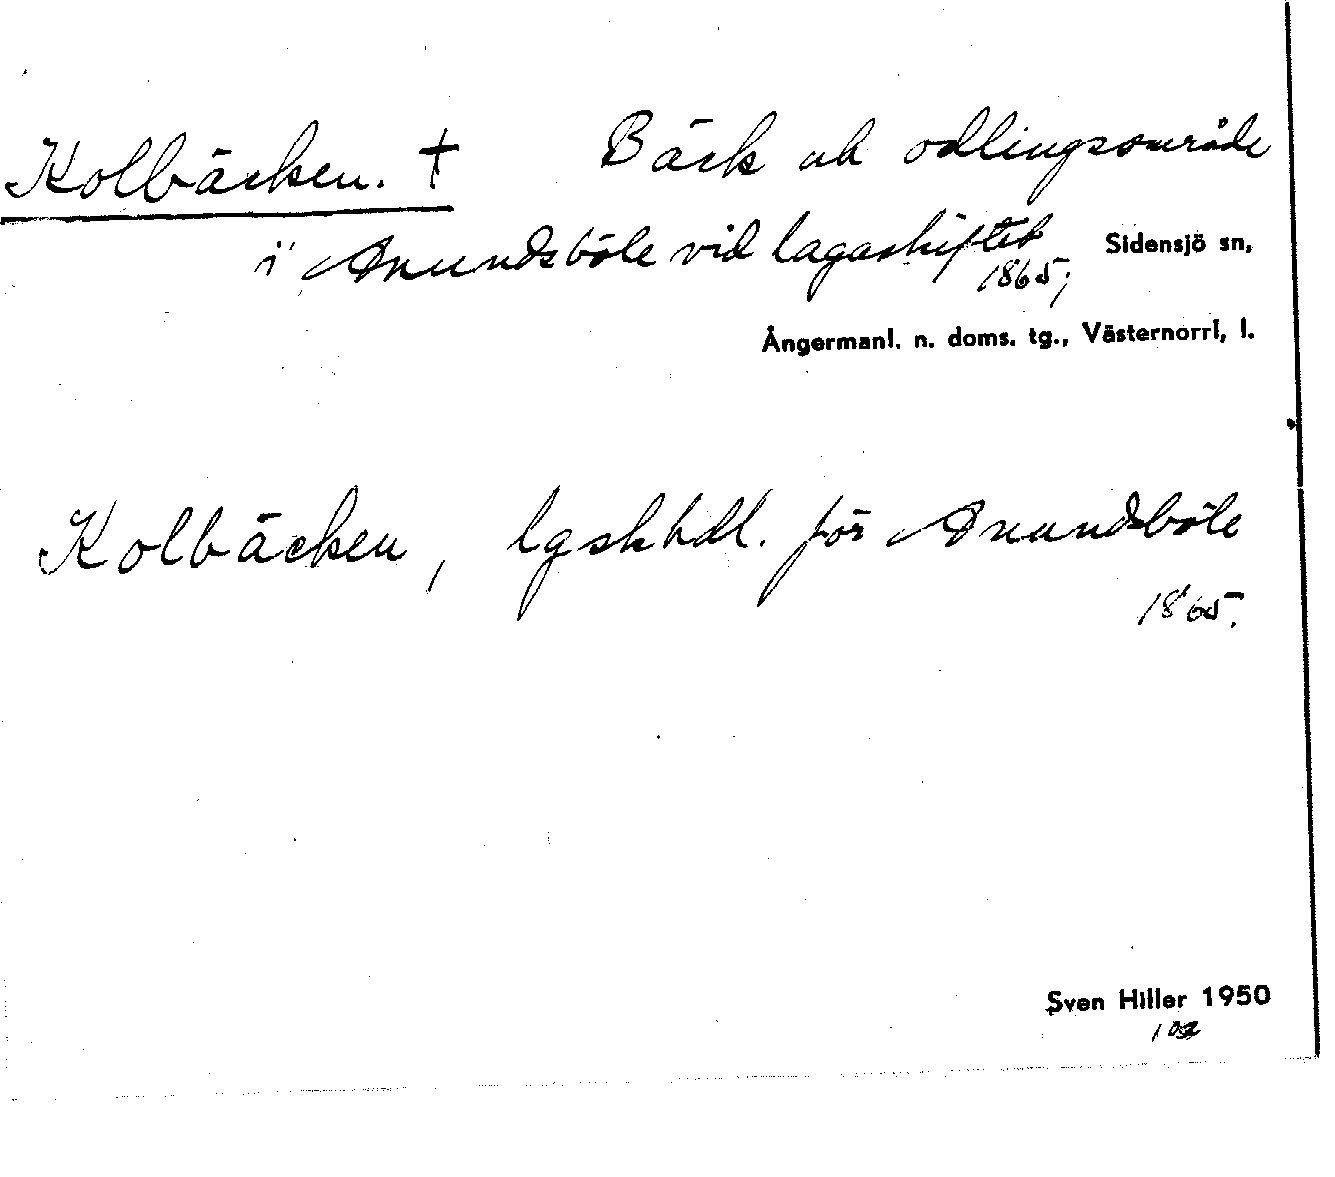 Kolbäcken. † Bäck och odlingsområde
i Anundsböle vid lagaskiftet Sidensjö sn,
1865;
Ångermanl. n. doms. tg., Västernorrl, l.
Kolbäcken, lgskhdl. för Anundsböle
1865.
Sven Hiller 1950